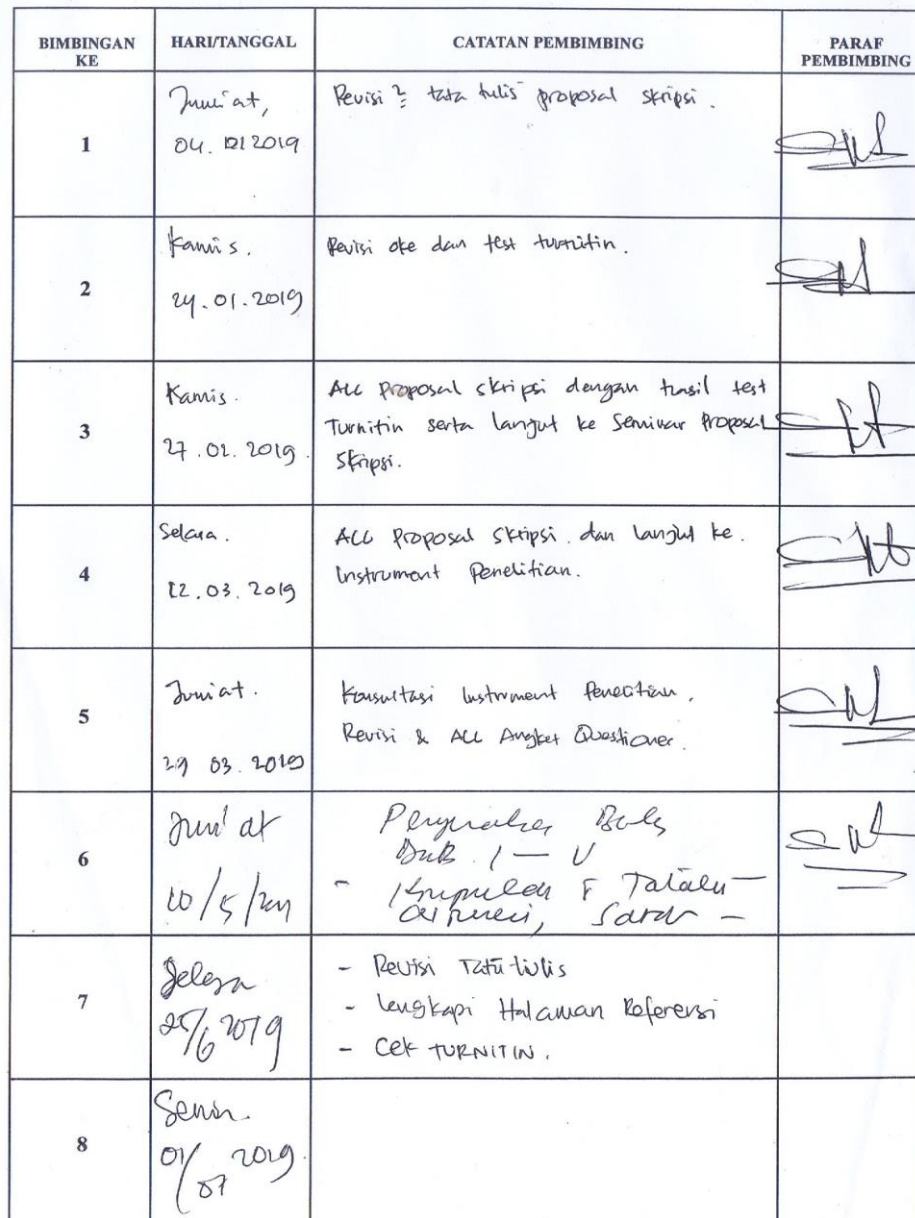 BIMBINGAN KE
HARI/TANGGAL
CATATAN PEMBIMBING
PARAF PEMBIMBING
1
Jum'at,
04. 01 2019
Revisi2 tata tulis proposal skripsi.
2
Kamis.
24.01.2019
Revisi oke dan test turnitin.
3
Kamis.
27.02.2019.
ACC Proposal skripsi dengan hasil test
Turnitin serta lanjut ke Seminar Proposal
Skripsi.
4
Selasa.
12.03.2019
ACC Proposal Skripsi dan lanjut ke.
Instrument Penelitian.
5
Jum'at.
29 03. 2019
Konsultasi Instrument Penelitian.
Revisi & ACC Angket Questioner.
6
Jum'at
10/5/
Bab
Bab. I — V
Saran
7
Selasa
25/6 2019
- Revisi Tata tulis
- Lengkapi Halaman Referensi
- Cek TURNITIN.
8
Senin.
01/07 2019.